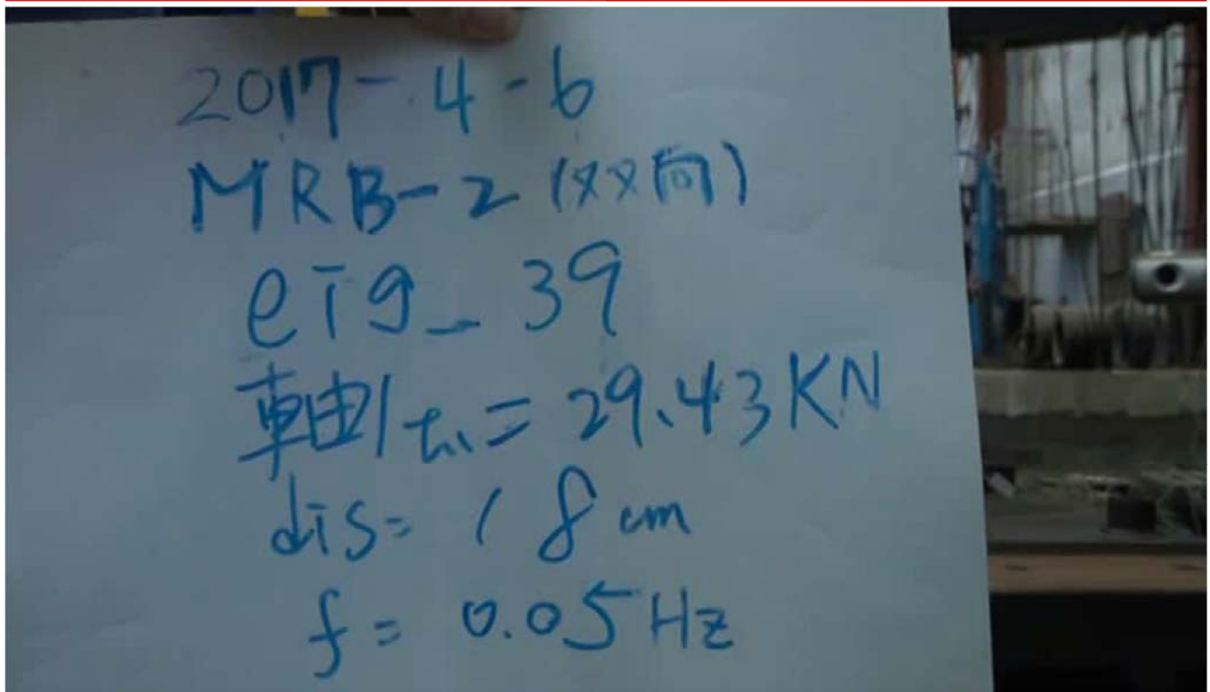 2017-4-6
MRB-2 (双向)
eig_39
軸力=29.43KN
dis=18cm
f=0.05Hz